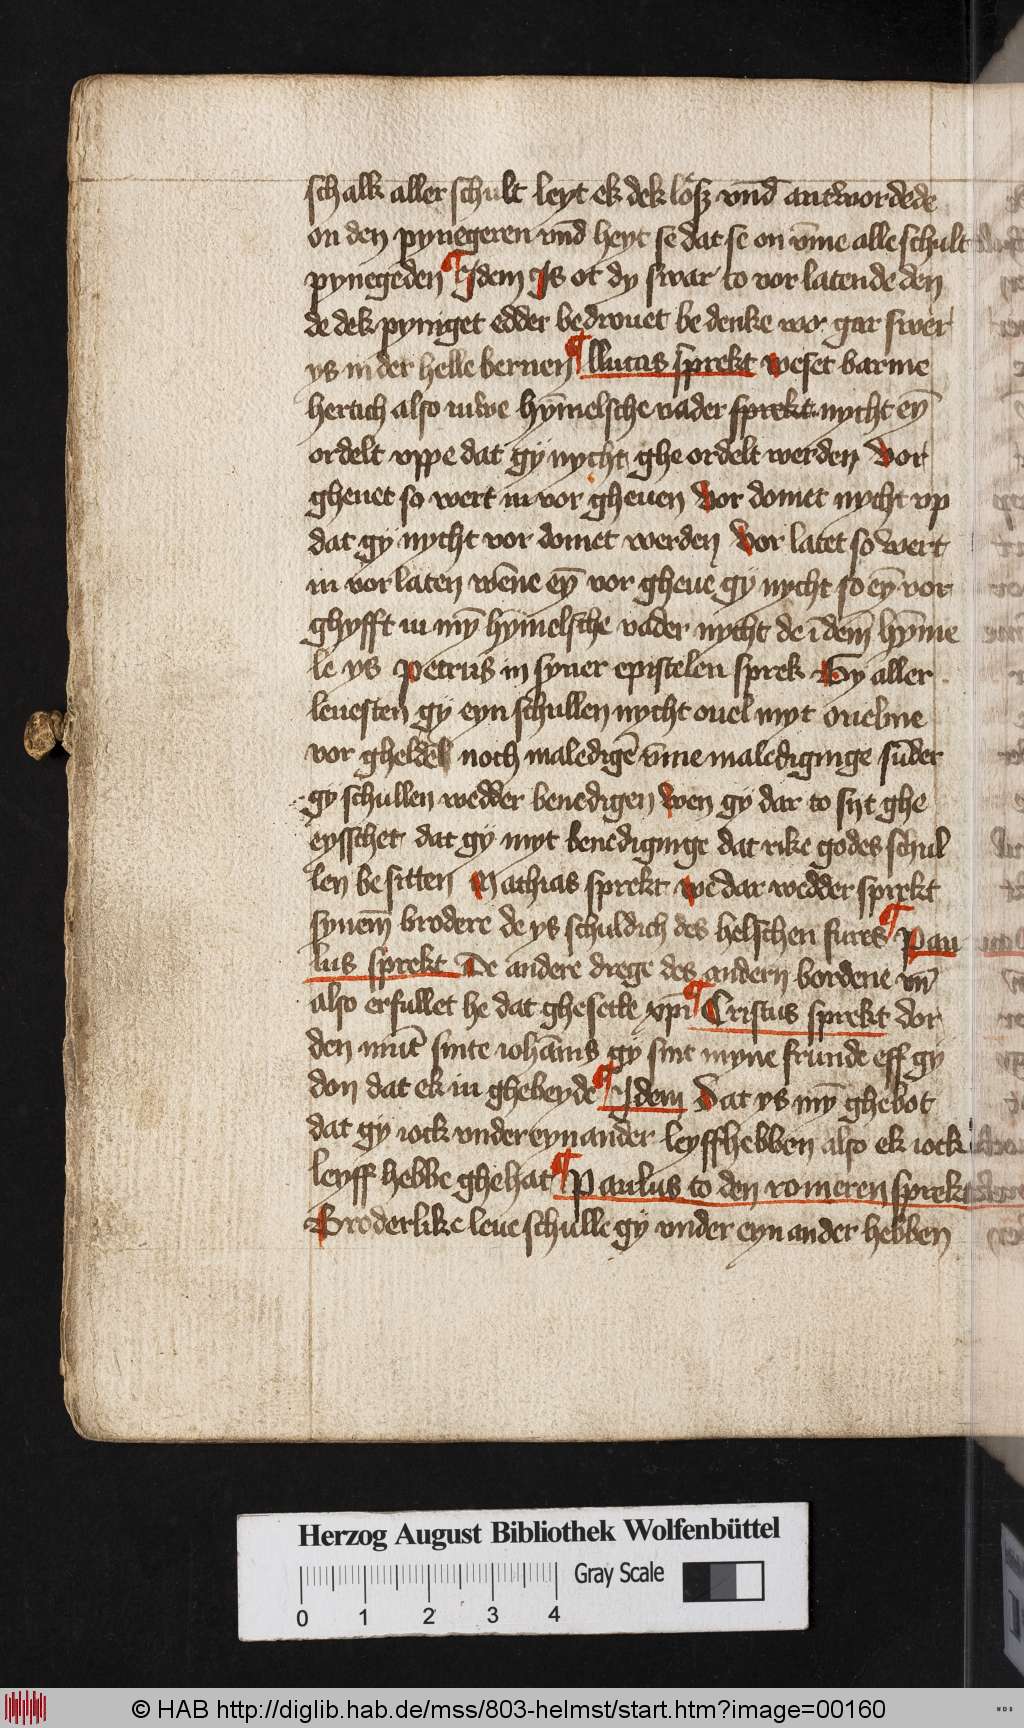 schalk aller schult leyt ek dek lösz vnd̄ antwordede
on den pynegeren vnd̄ heyt se dat se on v̄me alle schult
pynegeden ¶ Idem Is ot dy swar to vor latende den
de dek pyniget edder bedrouet be denke wo gar swer
ys in der helle bernen ¶ lucas sprekt weset barme
hertich also iuwe hȳmelsche vader sprekt nycht eȳ
ordelt vppe dat gy nycht ghe ordelt werden Vor
gheuet so wert iu vor gheuen Vor domet nycht vp
dat gy nycht vor domet werden Vor latet so wert
iu vor laten wēne eȳ vor gheue gy nycht so eȳ vor
ghyfft iu mȳ hȳmelsche vader nycht de ī dem̄ hȳme
le ys Petrus in syner epistelen sprek Gy aller
leuesten gy eyn schullen nycht ouel myt ouelme
vor gheldē noch maledigē v̄me malediginge sūder
gy schullen wedder benedigen wen gy dar to sijt ghe
eysschet dat gy myt benediginge dat rike godes schul
len be sitten Mathias sprekt we dar wedder sprekt
synem̄ brodere de ys schuldich des helschen fures ¶ Pau
lus sprekt De andere drege des andern bordene vn̄
also erfullet he dat ghesette xp̄i ¶ Cristus sprekt dor
den mūt sinte iohānis gy sint myne frunde eff gy
don dat ek iu ghebeyde ¶ Idem Dat ys mȳ ghebot
dat gy iock vnder eyn ander leyff hebben also ek iock
leyff hebbe ghehat ¶ Paulus to den romeren sprekt
Broderlike leue schulle gy vnder eyn ander hebben
Herzog August Bibliothek Wolfenbüttel
Gray Scale
0 1 2 3 4
© HAB http://diglib.hab.de/mss/803-helmst/start.htm?image=00160